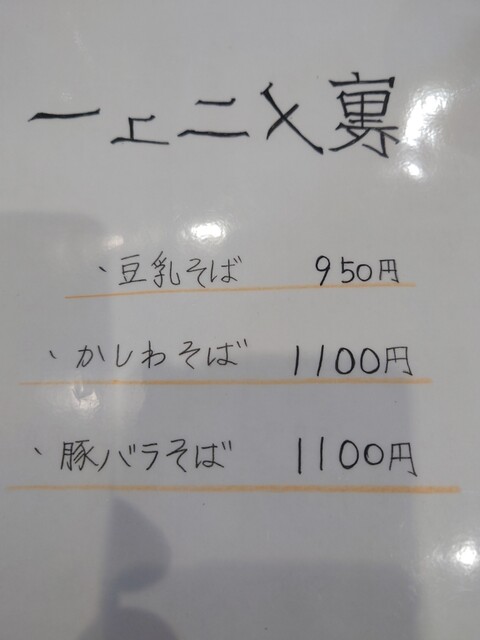 裏メニュー
・豆乳そば 950円
・かしわそば 1100円
・豚バラそば 1100円